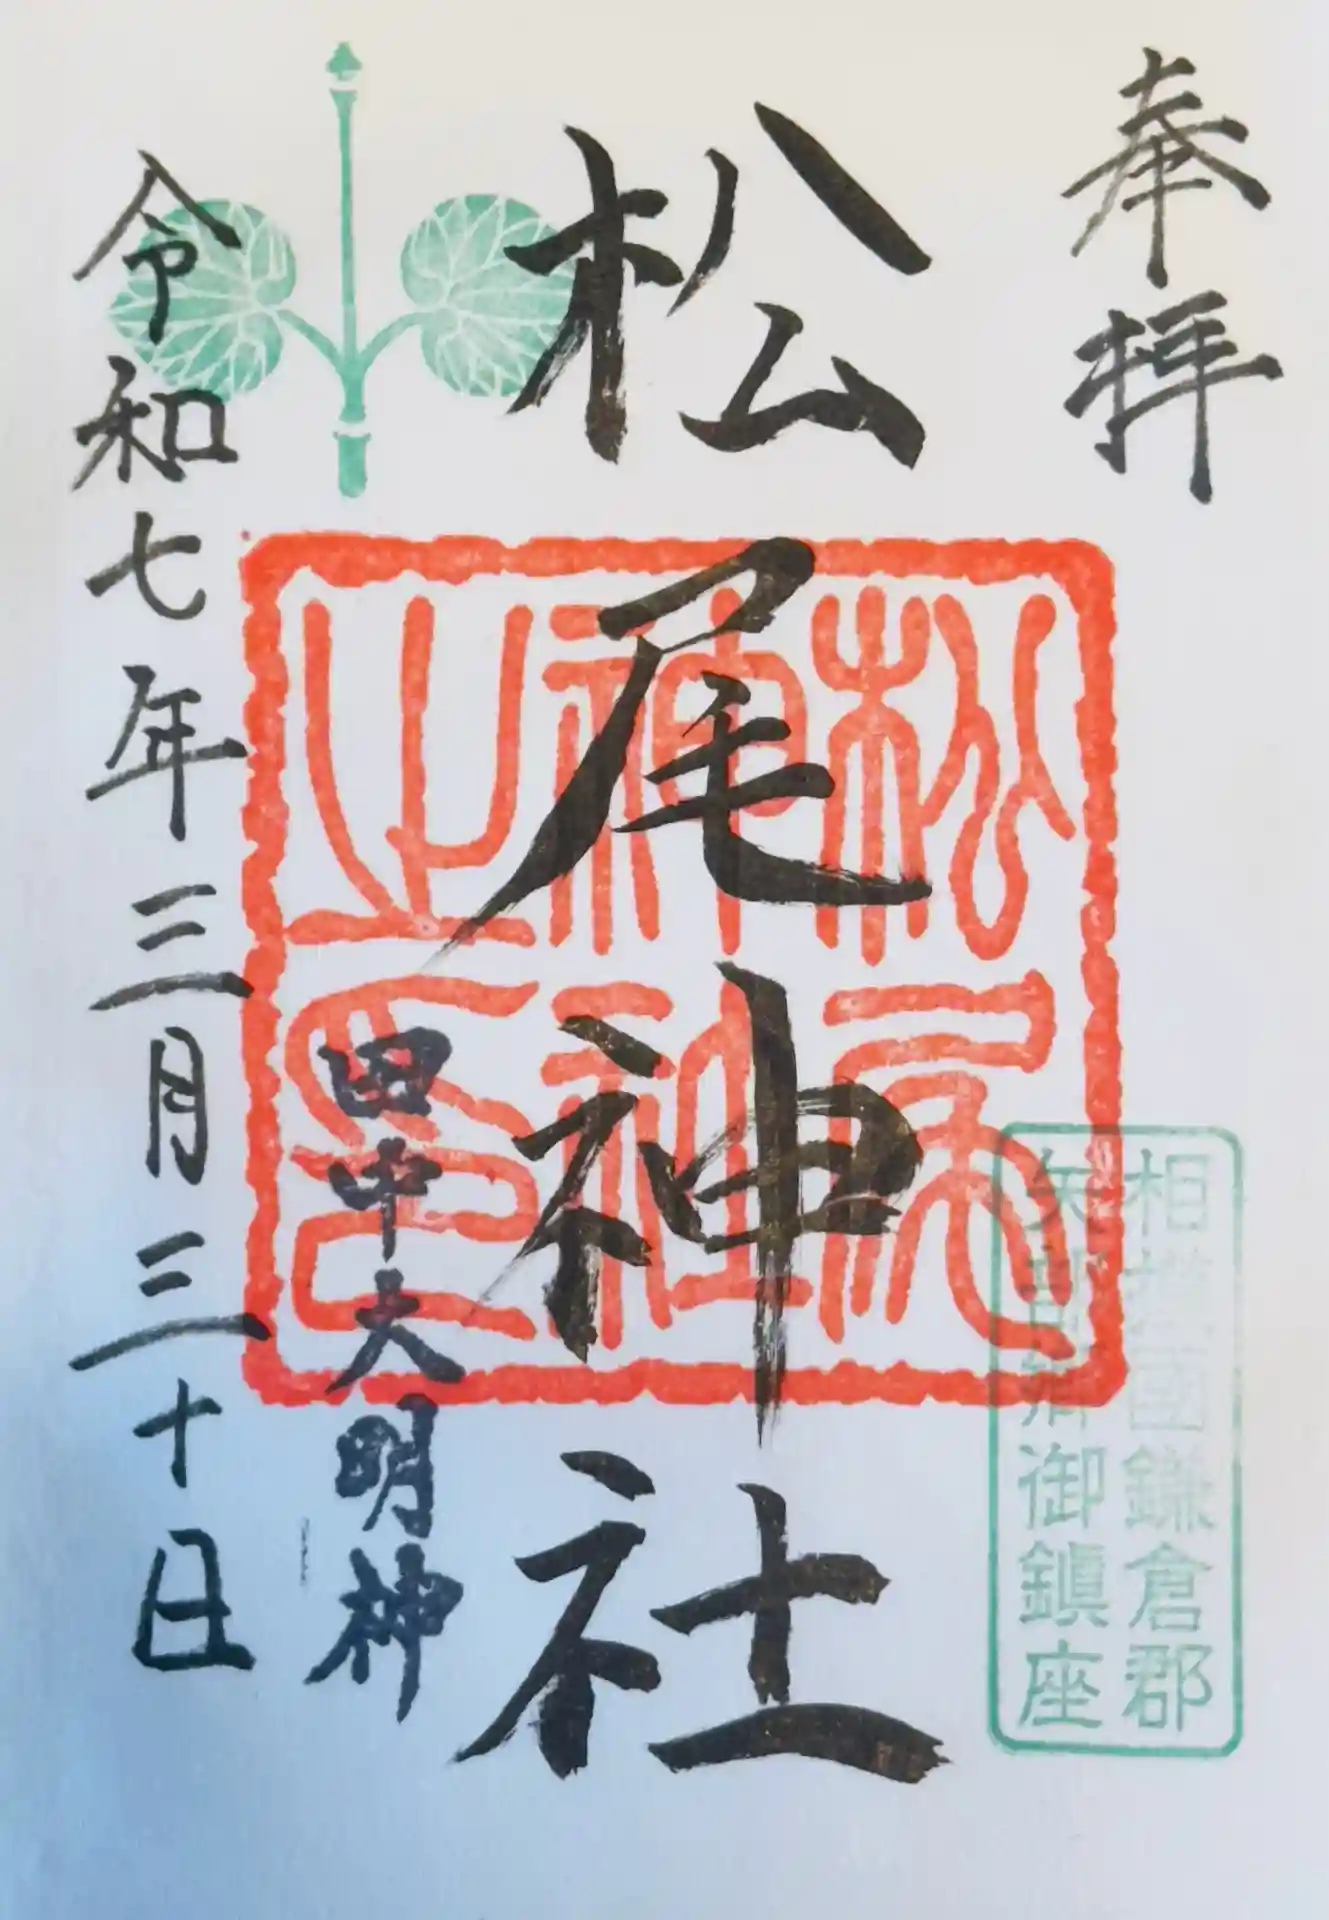 奉拝
相模國鎌倉郡
矢部郷御鎮座
松尾神社
松尾
神社
之印
田中大明神
令和七年三月三十日